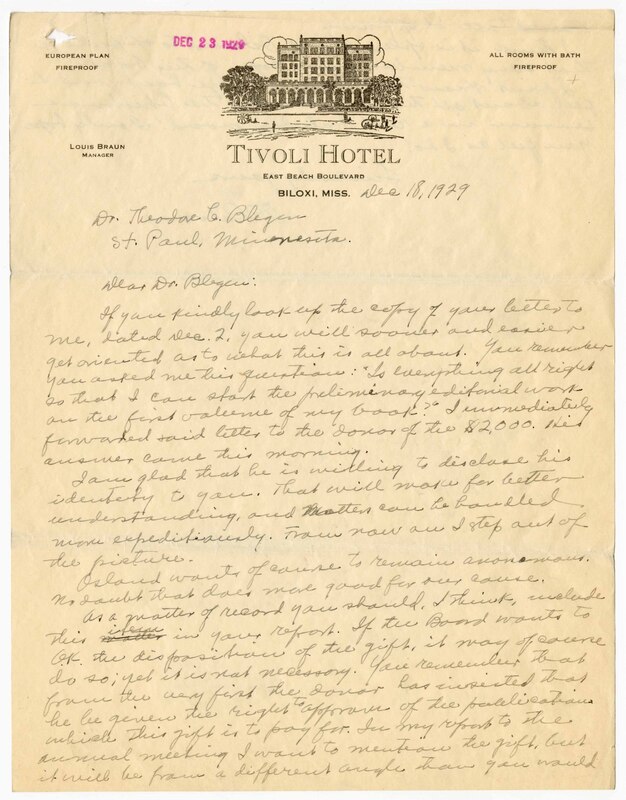 DEC 23 1929
EUROPEAN PLAN
FIREPROOF
ALL ROOMS WITH BATH
FIREPROOF
LOUIS BRAUN
MANAGER
TIVOLI HOTEL
EAST BEACH BOULEVARD
BILOXI, MISS. Dec 18, 1929
Dr. Theodore C. Blegen
St. Paul, Minnesota.
Dear Dr. Blegen:
If you kindly look up the copy of your letter to
me, dated Dec. 2, you will sooner and easier
get oriented as to what this is all about. You remember
you asked me this question: "Is everything all right
so that I can start the preliminary editorial work
on the first volume of my book?" I immediately
forwarded said letter to the donor of the $2,000. His
answer came this morning.
I am glad that he is willing to disclose his
identity to you. That will make for better
understanding, and matters can be handled
more expeditiously. From now on I step out of
the picture.
Osland wants of course to remain anonomous.
No doubt that does more good for our cause.
As a matter of record you should, I think, include
this item in your report. If the Board wants to
OK the disposition of the gift, it may of course
do so; yet it is not necessary. You remember that
from the very first the donor has insisted that
he be given the right to approve of the publication
which this gift is to pay for. In my report to the
annual meeting I want to mention the gift, but
it will be from a different angle than you would